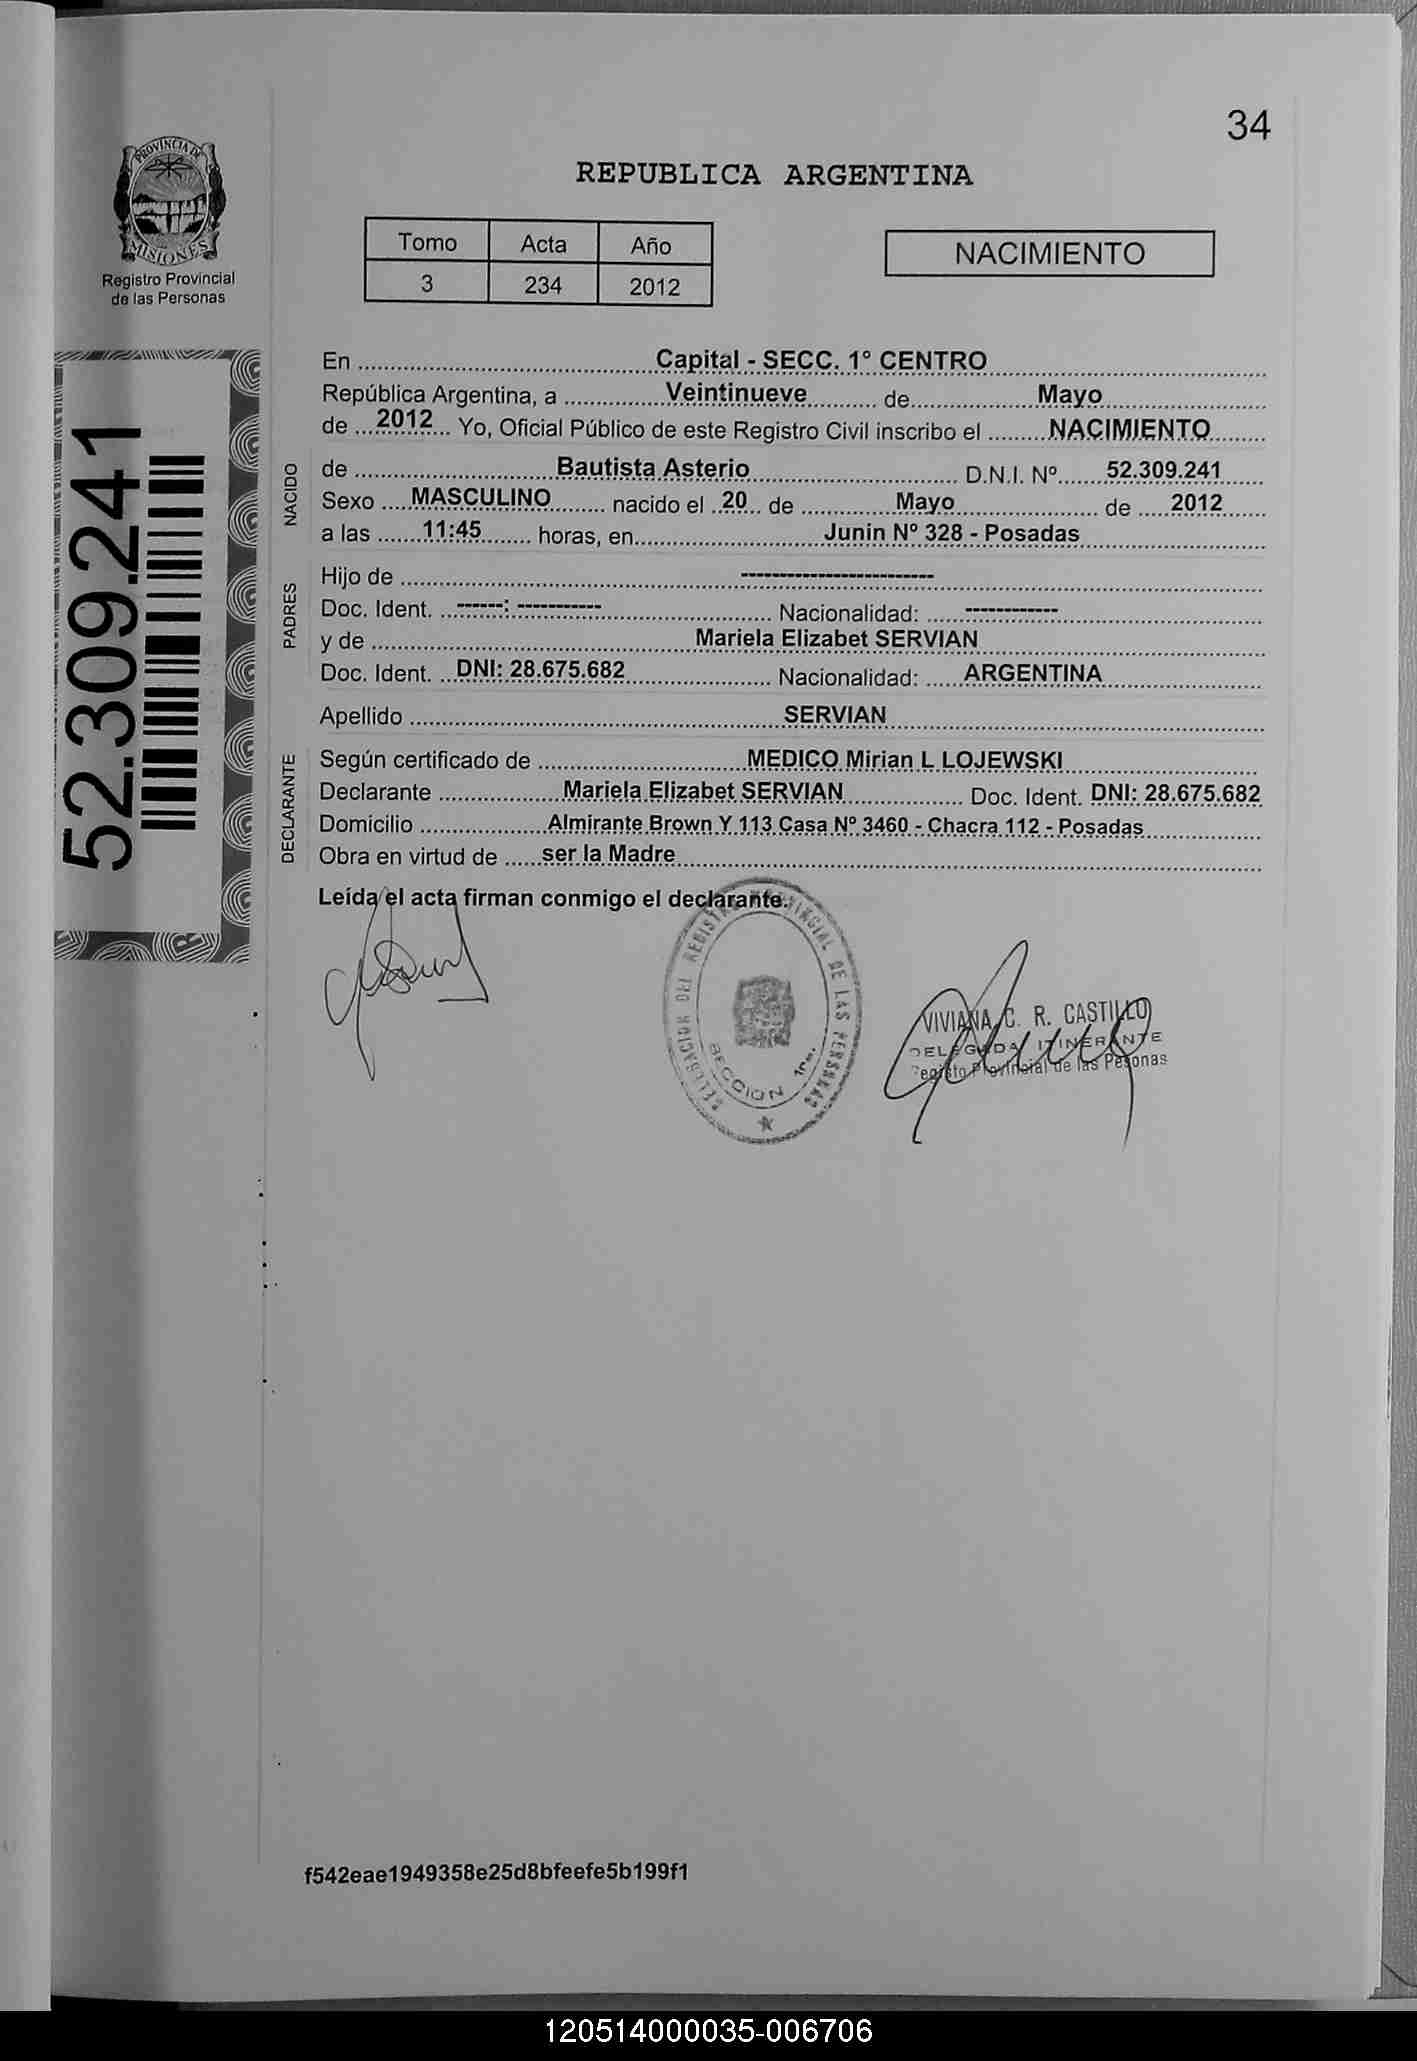 34
PROVINCIA DE
MISIONES
Registro Provincial
de las Personas
REPUBLICA ARGENTINA
Tomo Acta Año
3 234 2012
NACIMIENTO
52.309.241
En Capital - SECC. 1° CENTRO
República Argentina, a Veintinueve de Mayo
de 2012 Yo, Oficial Público de este Registro Civil inscribo el NACIMIENTO
NACIDO
de Bautista Asterio D.N.I. Nº 52.309.241
Sexo MASCULINO nacido el 20 de Mayo de 2012
a las 11:45 horas, en Junin Nº 328 - Posadas
PADRES
Hijo de -------------------------
Doc. Ident. ------: ----------- Nacionalidad: ------------
y de Mariela Elizabet SERVIAN
Doc. Ident. DNI: 28.675.682 Nacionalidad: ARGENTINA
Apellido SERVIAN
DECLARANTE
Según certificado de MEDICO Mirian L LOJEWSKI
Declarante Mariela Elizabet SERVIAN Doc. Ident. DNI: 28.675.682
Domicilio Almirante Brown Y 113 Casa Nº 3460 - Chacra 112 - Posadas
Obra en virtud de ser la Madre
Leída el acta firman conmigo el declarante.
DELEGACION DEL REGISTRO PROVINCIAL DE LAS PERSONAS
SECCION 1ra.
VIVIANA C. R. CASTILLO
DELEGADA ITINERANTE
Registo Provincial de las Pesonas
f542eae1949358e25d8bfeefe5b199f1
120514000035-006706